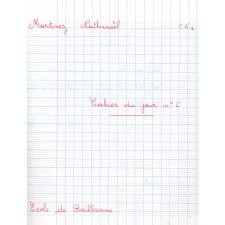 Martinez Nathanaël CE2
Cahier du jour n°6
Ecole de Reillanne